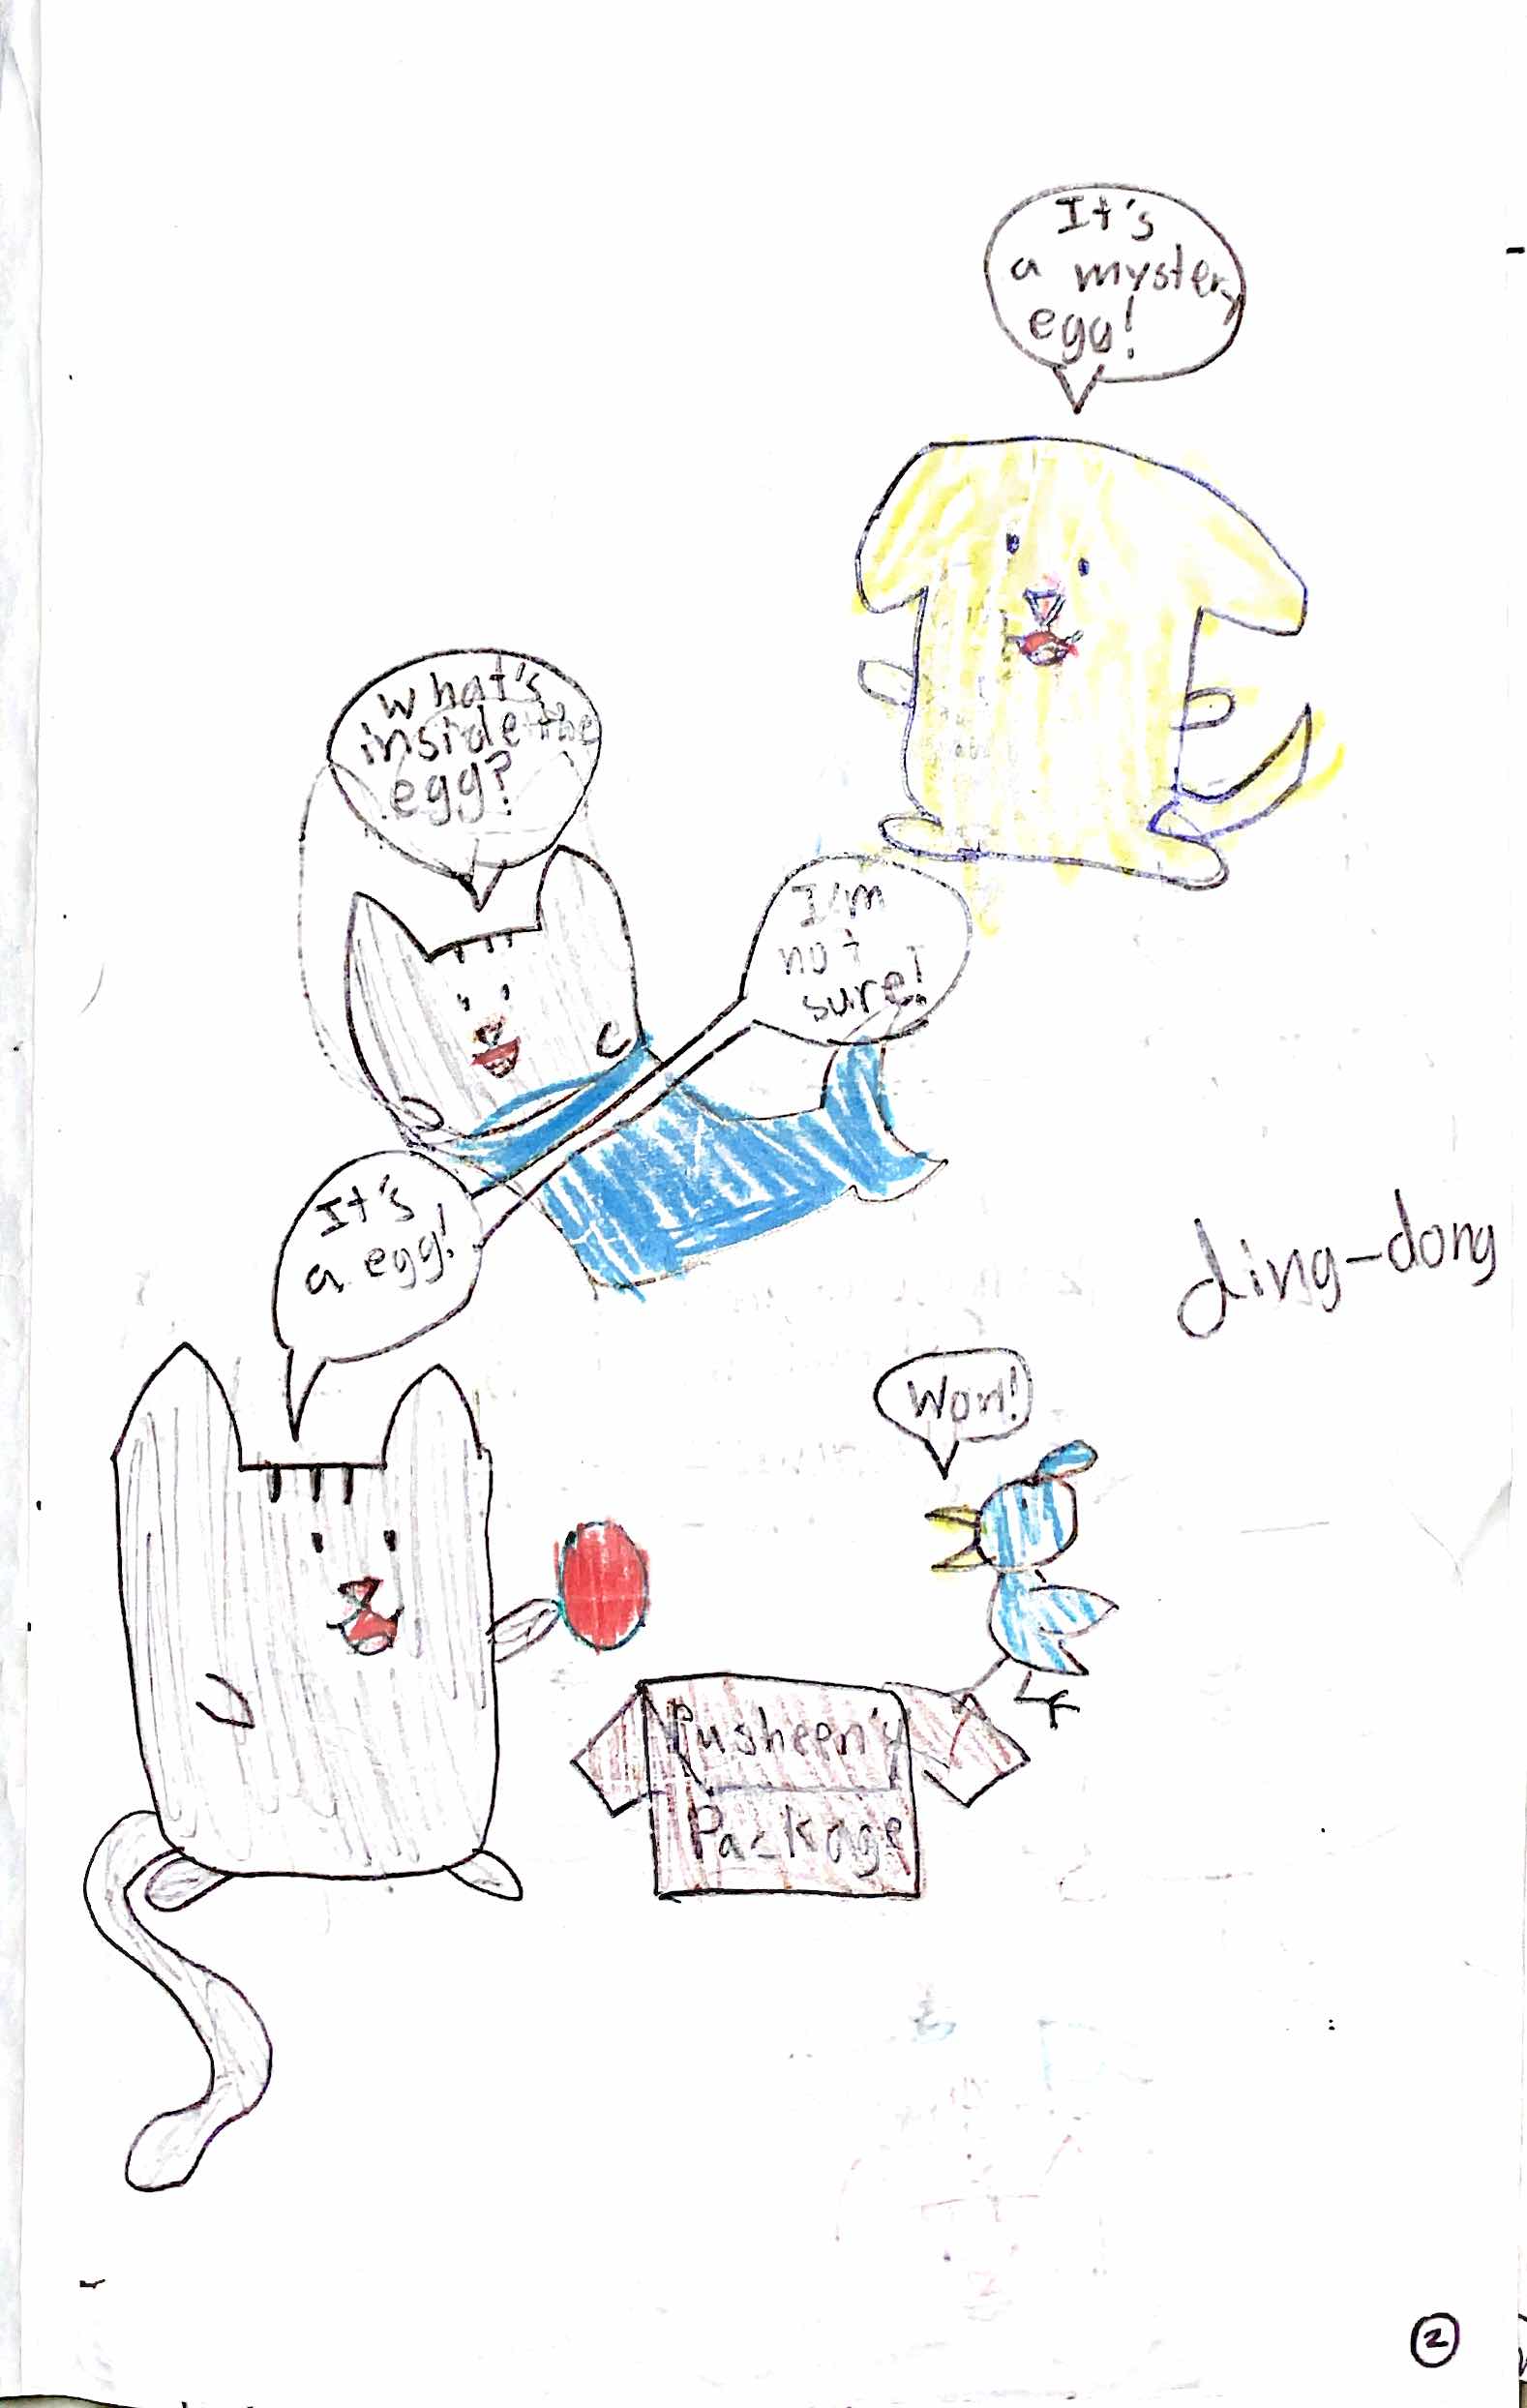 It's
a mystery
egg!
What's
inside the
egg?
I'm
not
sure!
It's
a egg!
ding-dong
Wow!
Pusheen's
Package
2